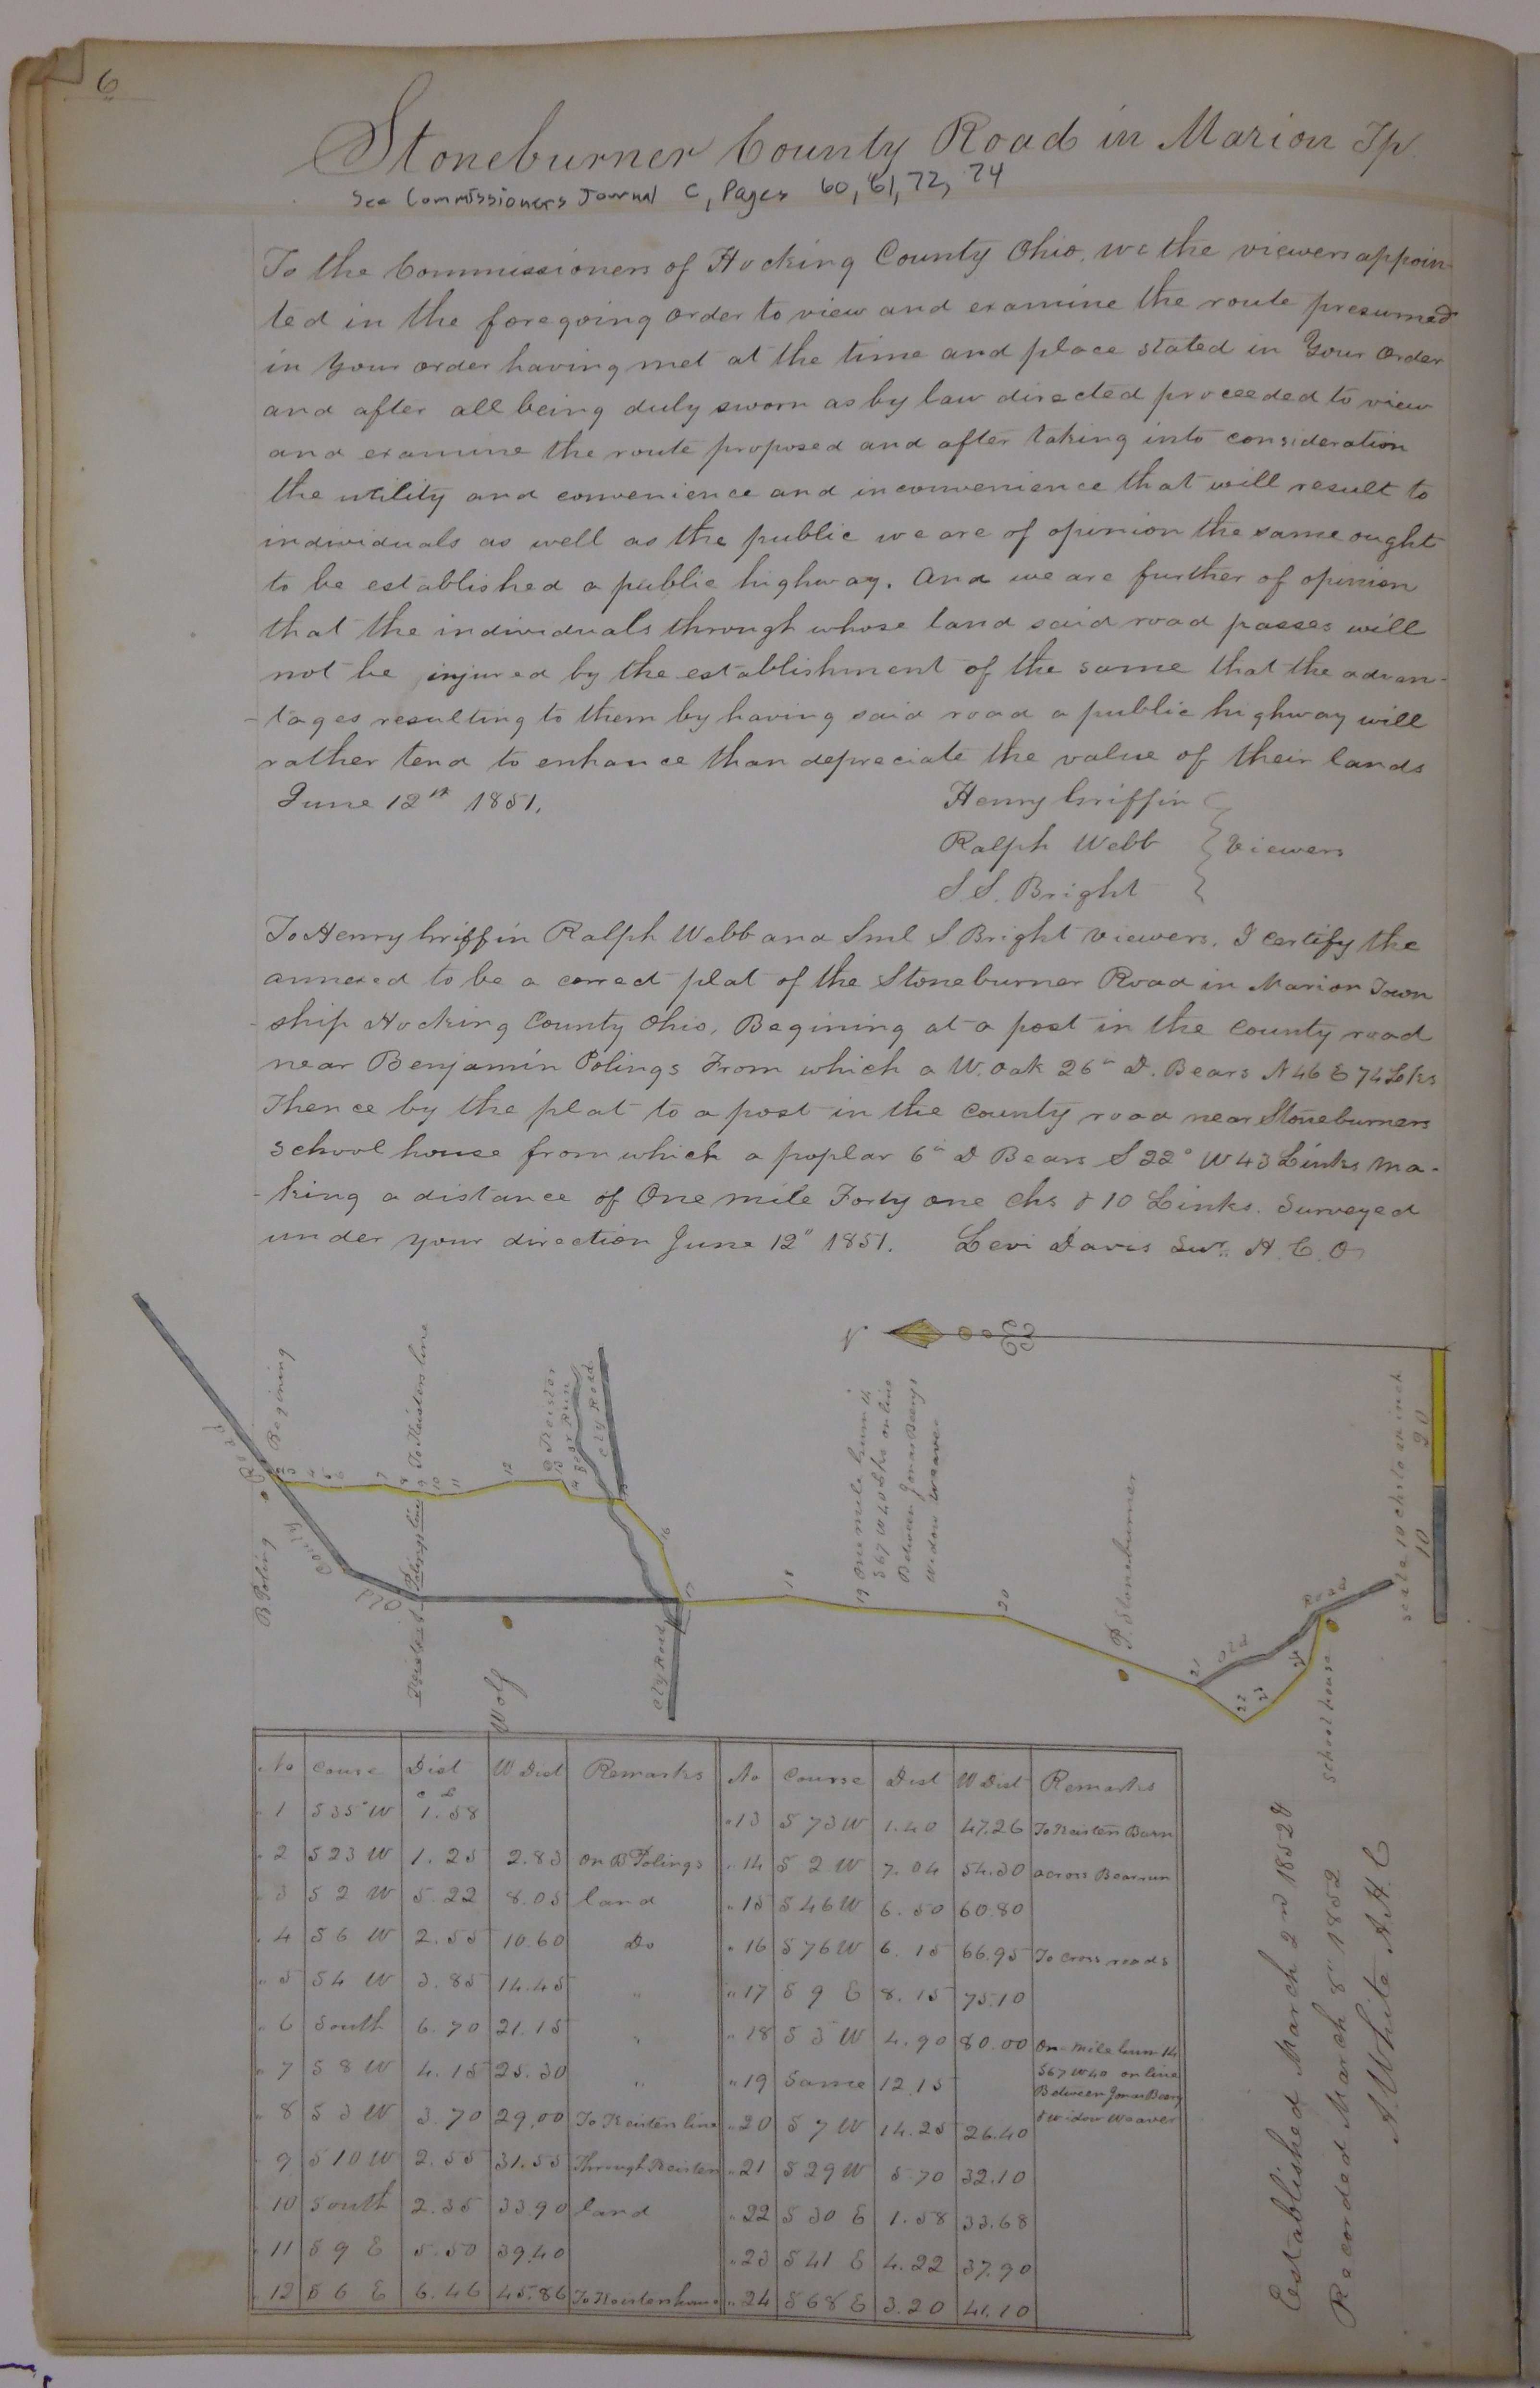 6
Stoneburner County Road in Marion Tp.
See Commissioners Journal C, Pages 60, 61, 72, 74
To the Commissioners of Hocking County Ohio, we the viewers appoin-
ted in the foregoing order to view and examine the route presumed
in your order having met at the time and place stated in Your order
and after all being duly sworn as by law directed proceeded to view
and examine the route proposed and after taking into consideration
the utility and convenience and inconvenience that will result to
individuals as well as the public we are of opinion the same ought
to be established a public highway. And we are further of opinion
that the individuals through whose land said road passes will
not be injured by the establishment of the same that the advan-
-tages resulting to them by having said road a public highway will
rather tend to enhance than depreciate the value of their lands
June 12th 1851.
Henry Griffin
Ralph Webb } Viewers
S. S. Bright
To Henry Griffin Ralph Webb and Sml S Bright Viewers. I certify the
annexed to be a correct plat of the Stoneburner Road in Marion Town
-ship Hocking County Ohio, Begining at a post in the county road
near Benjamin Polings From which a W. Oak 26" D. Bears N 46 E 74 Lks
Thence by the plat to a post in the county road near Stoneburners
school house from which a poplar 6" D Bears S 22° W 43 Links Ma-
-king a distance of One mile Forty one chs & 10 Links. Surveyed
under your direction June 12" 1851. Levi Davis Sur. H. C. O
N
Road
Begining
To Heisters line
County
B Poling
Polings line
Bear Run
Cty Road
19 One mile hum 14
S67 W 40 Lks on line
Between Jonas Beery &
Widow Weaver
P. Stoneburner
Wolf
Cty Road
Old
Road
School house
scale 10 chs to an inch
10 20
No Course Dist W Dist Remarks
C L
1 S 35° W 1.58
2 S 23 W 1.25 2.83 On B Polings
3 S 2 W 5.22 8.05 land
4 S 6 W 2.55 10.60 Do
5 S 4 W 3.85 14.45 "
6 South 6.70 21.15 "
7 S 8 W 4.15 25.30 "
8 S 3 W 3.70 29.00 To Heisters line
9 S 10 W 2.55 31.55 Through Heisters
10 South 2.35 33.90 land
11 S 9 E 5.50 39.40
12 S 6 E 6.46 45.86 To Heisters house
No Course Dist W Dist Remarks
13 S 73 W 1.40 47.26 To Heisters Barn
14 S 2 W 7.04 54.30 across Bear run
15 S 46 W 6.50 60.80
16 S 76 W 6.15 66.95 To cross roads
17 S 9 E 8.15 75.10
18 S 5 W 4.90 80.00 On mile hum 14
S67 W40 on line
19 Same 12.15 Between Jonas Beery
& Widow Weaver
20 S 7 W 14.25 26.40
21 S 29 W 5.70 32.10
22 S 30 E 1.58 33.68
23 S 41 E 4.22 37.90
24 S 68 E 3.20 41.10
Established March 2nd 1852 &
Recorded March 8" 1852
A. White A. H. C